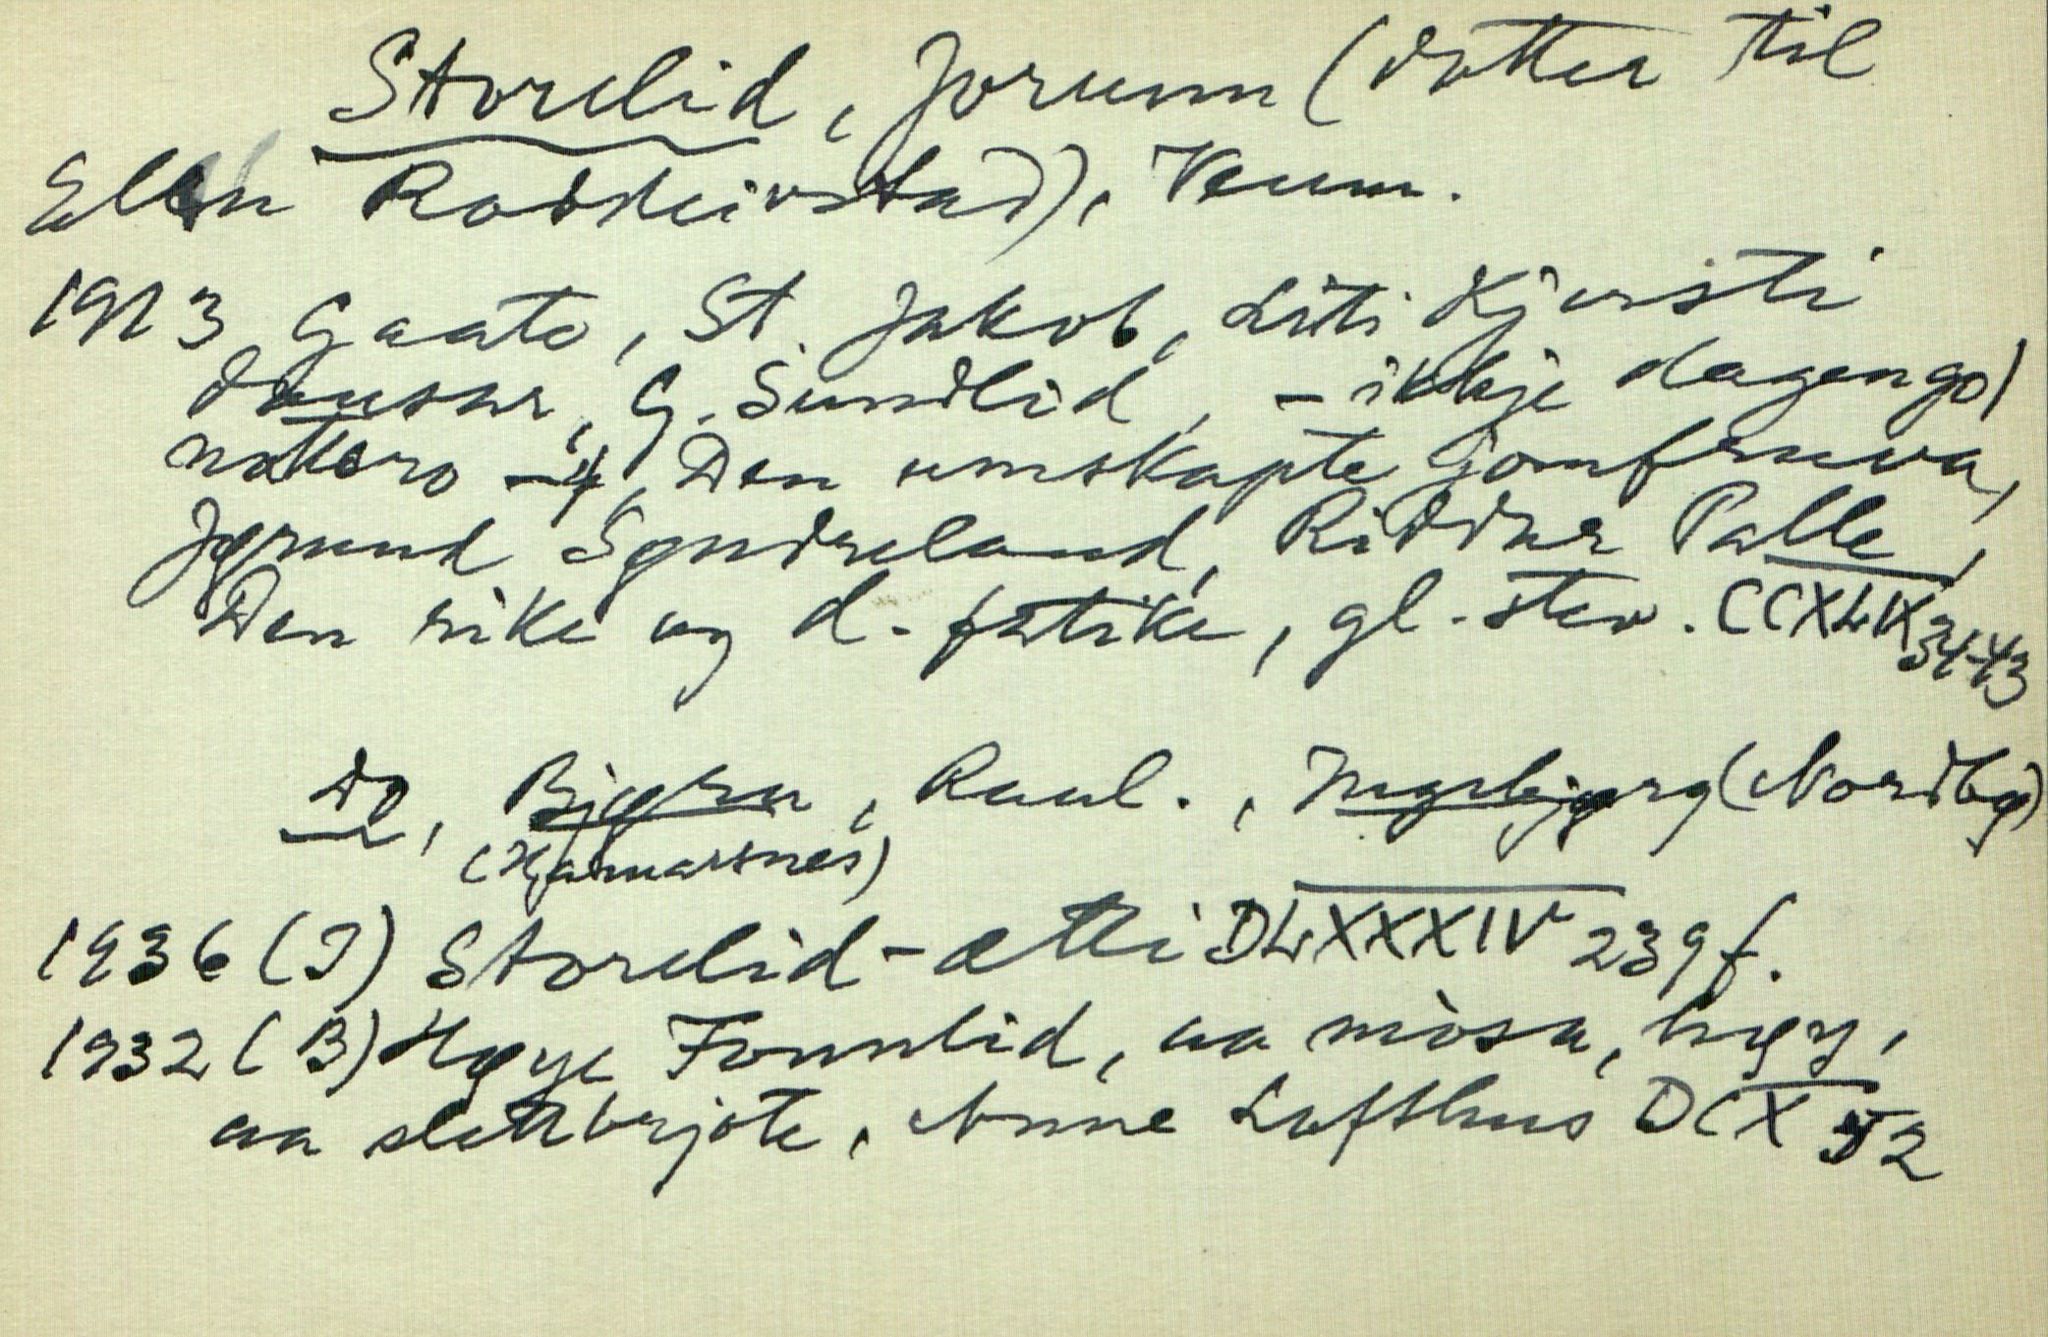 Storelid, Jorunn (dotter til
Ellen Roddeivstad), Veum.
1913 Gaate, St. Jakob, Liti Kjersti
dansar, G. Sundlid, - ikkje dagengo/
nattero - 4, Den umskapte jomfruva,
Jørund Søndreland, Riddar Palle,
Den rike og d. fatike, gl. stev. CCXLIX 34-43
Do, Bjørn, Raul., Ingebjørg (Nordbø)
(Hamarsnes)
1936 (I) Storelid-ætti DLXXXIV 239 f.
1932 (B) Høye Fonnlid, aa mosa, høy,
aa slettbrjote, Anne Lofthus DCX 52